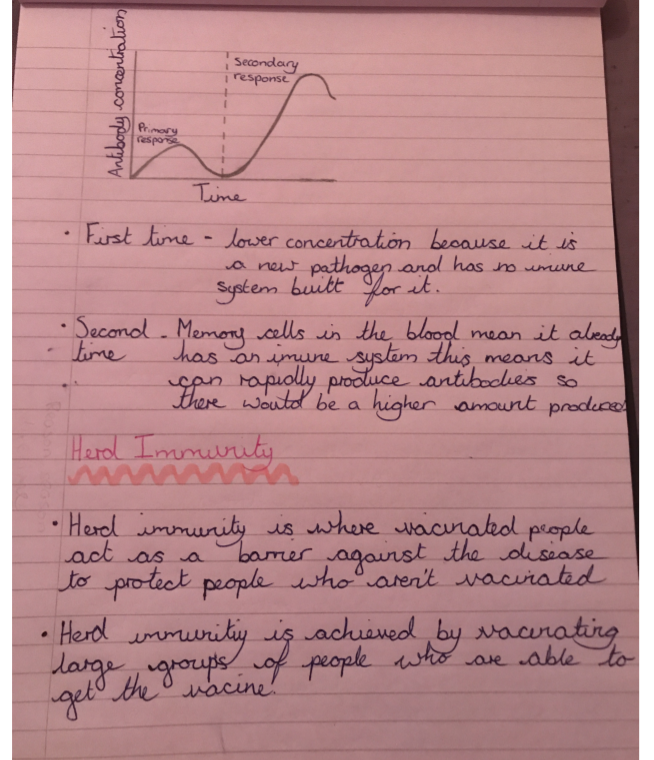 Antibody concentration
Secondary
response
Primary
response
Time
• First time - lower concentration because it is
a new pathogen and has no imune
system built for it.
• Second - Memory cells in the blood mean it already
time has an imune system this means it
can rapidly produce antibodies so
there would be a higher amount produced
Herd Immunity
• Herd immunity is where vacinated people
act as a barrier against the disease
to protect people who aren't vacinated
• Herd immunitiy is achieved by vacinating
large groups of people who are able to
get the vacine.